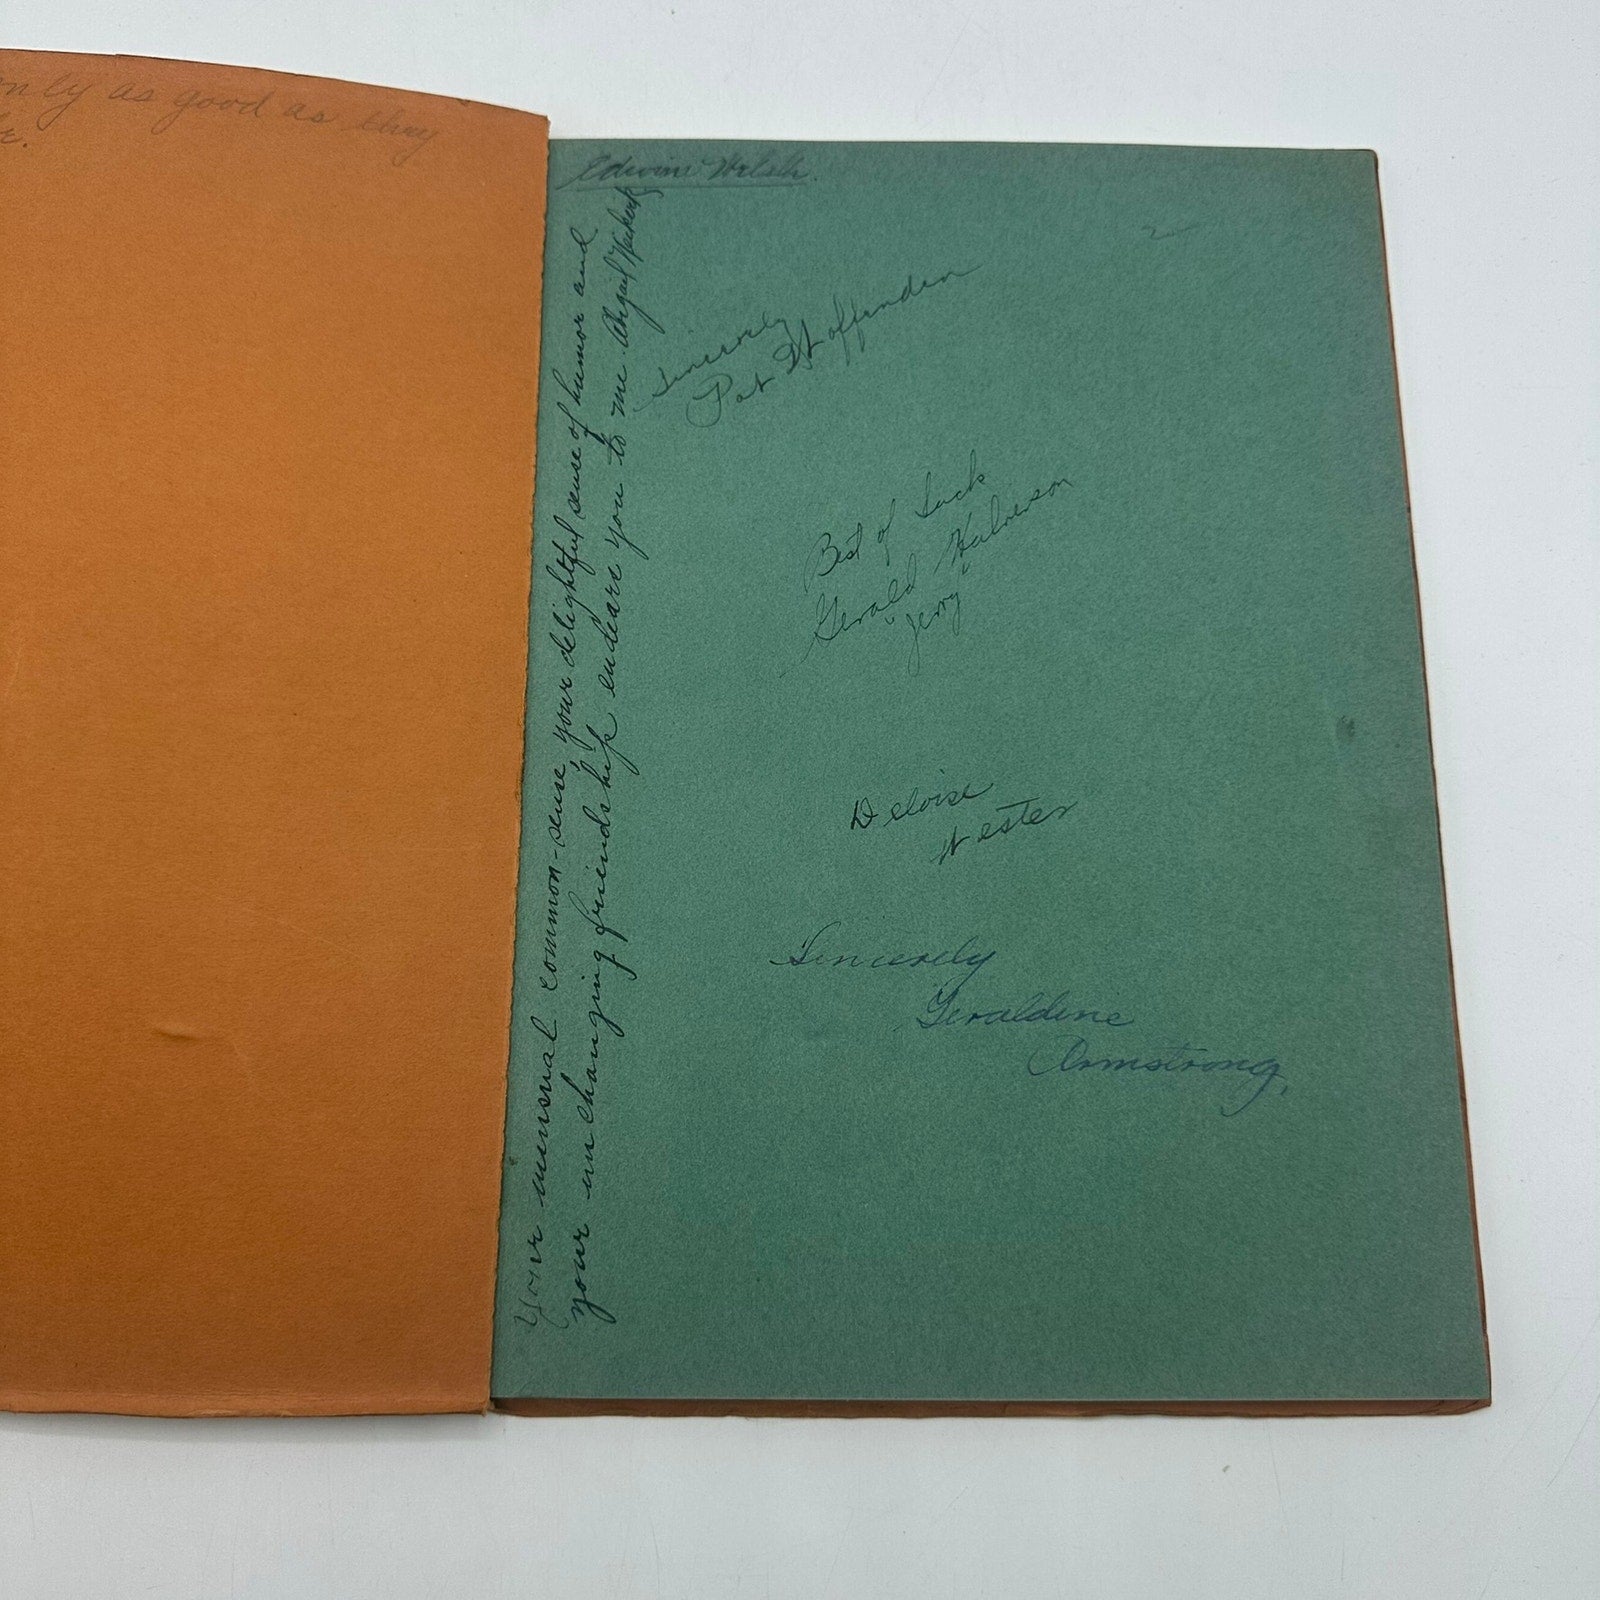 only as good as they
Edwin Walsh.
Your unusual common-sense, your delightful sense of humor and
your unchanging friendship endears you to me. Abigail
Sincerely
Pat
Best of Luck
Gerald Halverson
"Jerry"
Deloise
Wester
Sincerely
Geraldine
Armstrong,